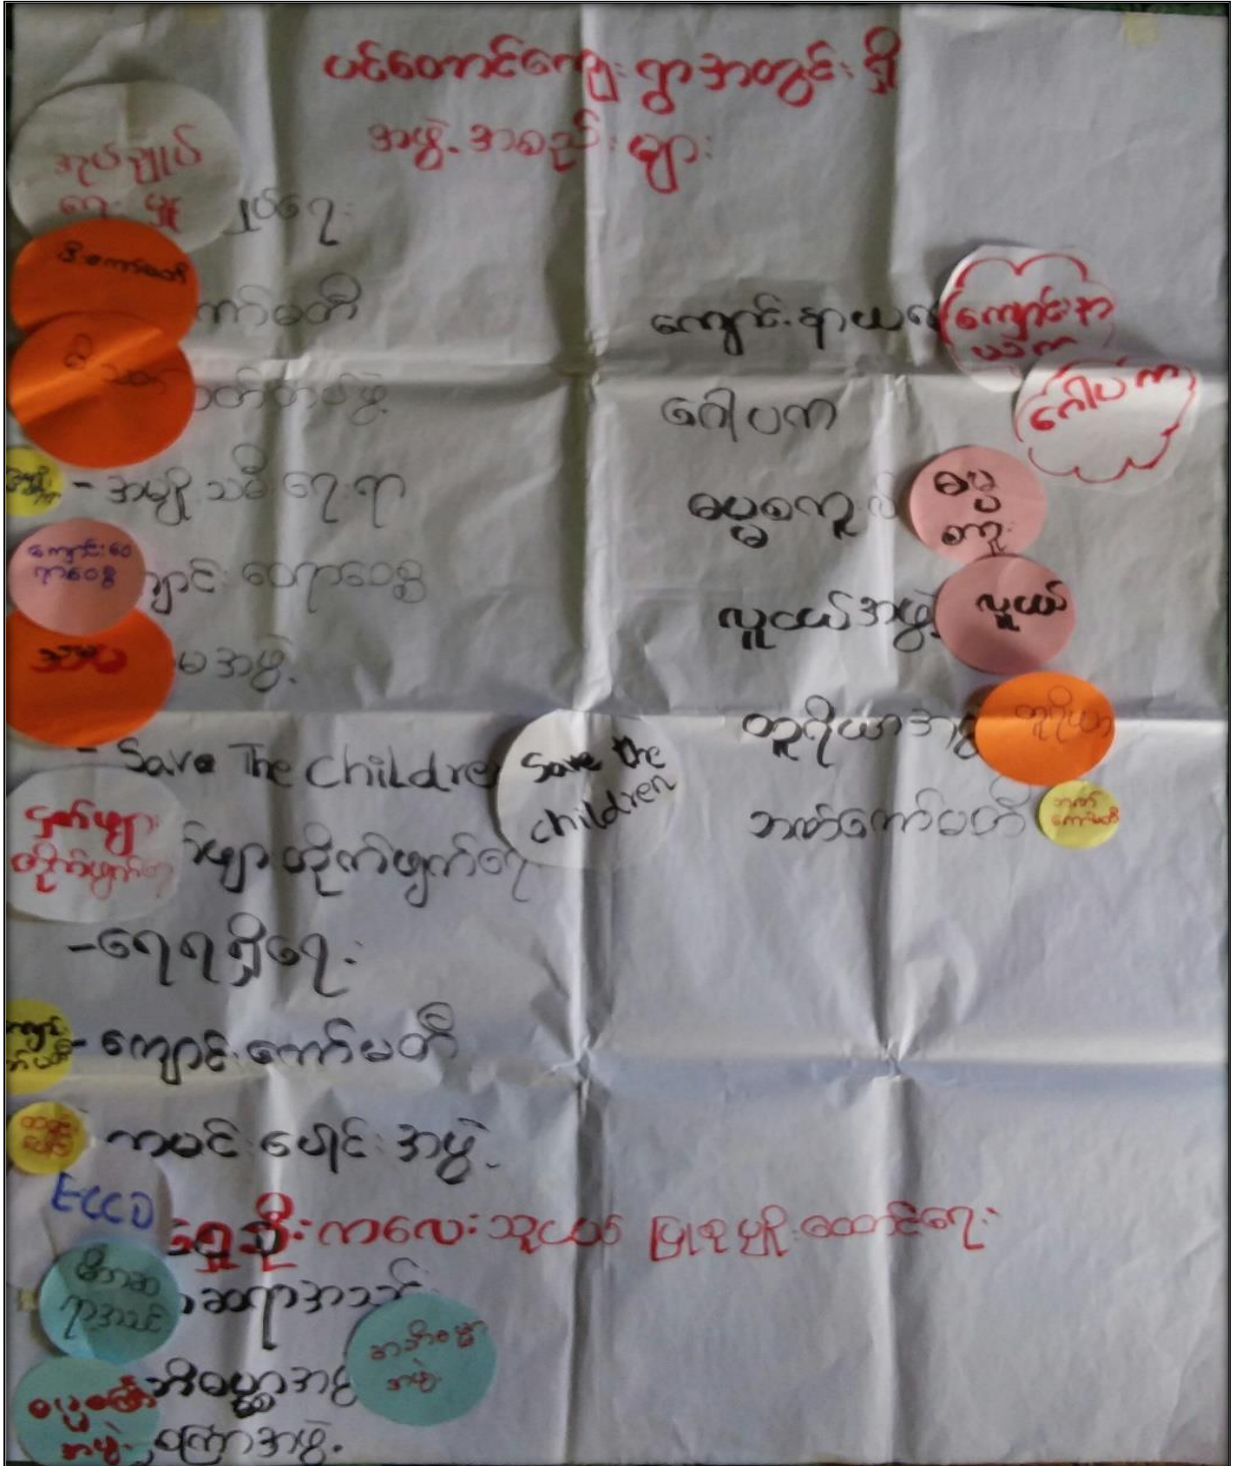 ပင်တောင်ကျေးရွာအတွင်းရှိ
အဖွဲ့အစည်းများ
အုပ်ချုပ်
ရေးမှူး
ုပ်ရေး
ဒီ.ကော်မတီ
ကာ်မတီ
- အမျိုးသမီးရေးရာ
ကျောင်းဝေ
ရာဝေစ္စ
ျာင်းဝေရာဝေစ္စ
မအဖွဲ့
- Save The Childre
Save the
children
ငှက်ဖျား
တိုက်ဖျက်ရေး
ာ်ဖျားတိုက်ဖျက်ရေး
- ရေရရှိရေး
- ကျောင်းကော်မတီ
ကမင်းပေါင်းအဖွဲ့
ECCD
ရှေ့ဦးကလေးသူငယ် ပြုစုပျိုးထောင်ရေး
မိဘဆ
ရာအသင်း
ဆရာအသင်း
ဘိဓမ္မာအဖွဲ့
အဘိဓမ္မာ
အဖွဲ့
ဓမ္မစကြာ
အဖွဲ့
စကြာအဖွဲ့
ကျောင်းနာယက
ကျောင်းနာ
ယက
ဂေါပက
ဂေါပက
ဓမ္မစကူးလ်
ဓမ္မ
စကူး
လူငယ်အဖွဲ့
လူငယ်
တူရိယာအဖွဲ့
တူရိယာ
ဘဏ်ကော်မတီ
ဘဏ်
ကော်မတီ